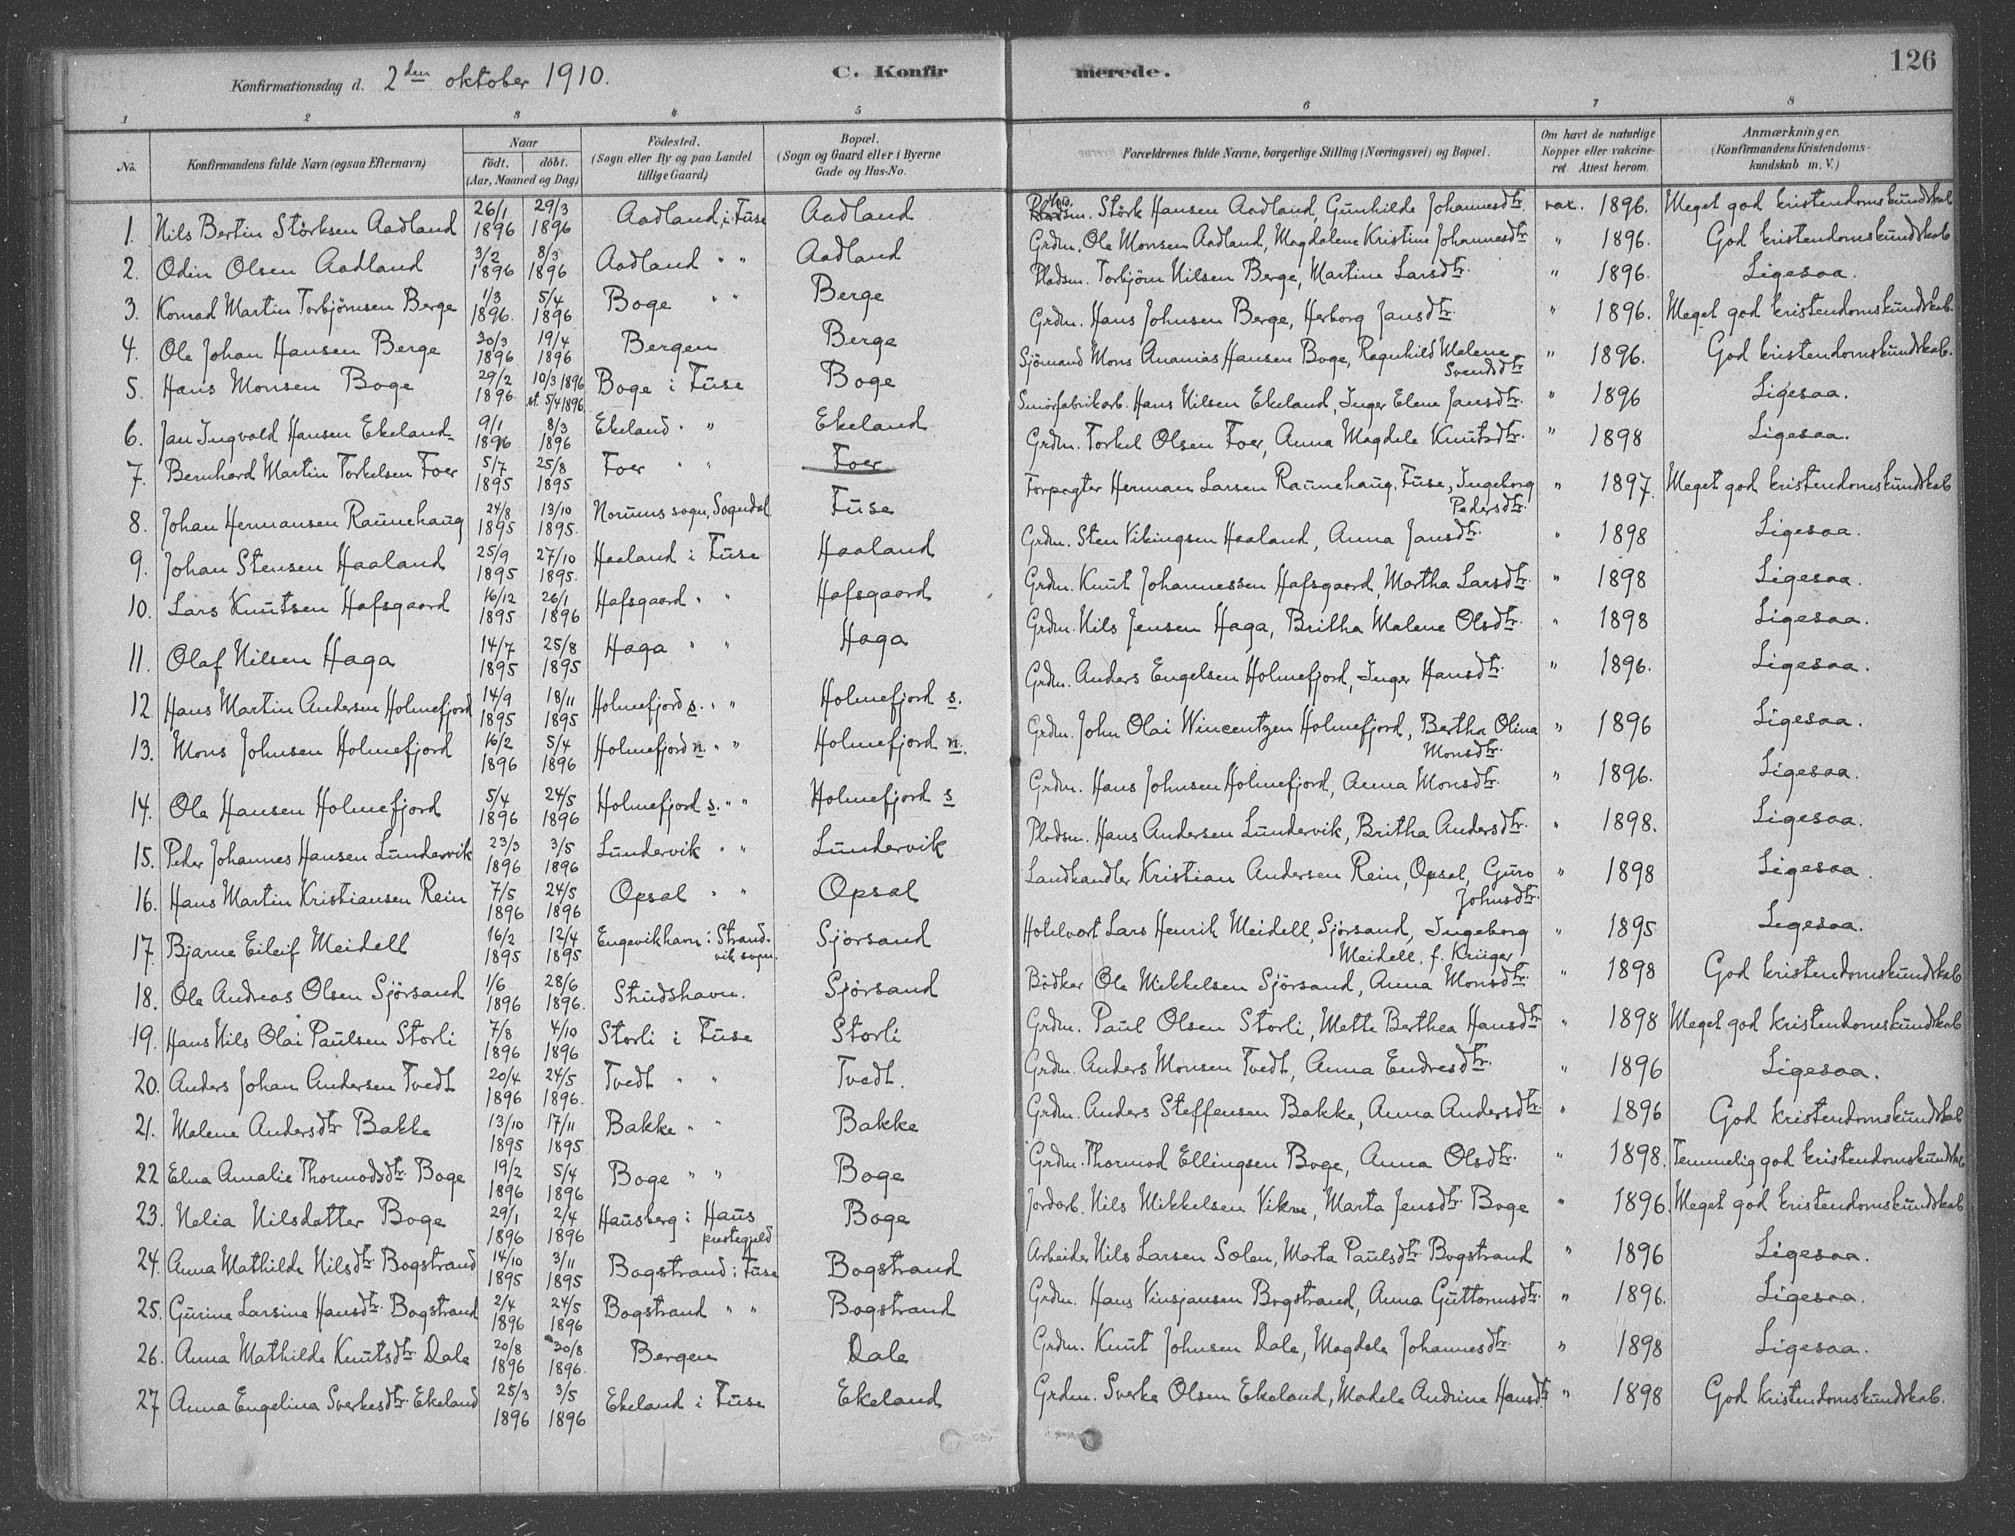 Konfirmationsdag d. 2den oktober 1910. C. Konfirmerede. 126
1 2 3 4 5 6 7 8
No. Konfirmandens fulde Navn (ogsaa Efternavn) Naar födt. döbt. (Aar, Maaned og Dag) Födested. (Sogn eller By og paa Landet tillige Gaard) Bopæl. (Sogn og Gaard eller i Byerne Gade og Hus-No. Forældrenes fulde Navne, borgerlige Stilling (Næringsvei) og Bopæl. Om havt de naturlige Kopper eller vakcineret. Attest herom. Anmærkninger. (Konfirmandens Kristendomskundskab m. V.)
1. Nils Bertin Størksen Aadland 26/1 1896 29/3 1896 Aadland i Fuse Aadland Størk Hansen Aadland, Gunhilde Johannesdtr. vac. 1896. Meget god kristendomskundskab
2. Odin Olsen Aadland 3/2 1896 8/3 1896 Aadland " " Aadland Grdm. Ole Monsen Aadland, Magdalene Kristine Johannesdtr " 1896. God kristendomskundskab
3. Konrad Martin Torbjörnsen Berge 1/3 1896. 5/4 1896 Boge " " Berge Pladsm. Torbjörn Nilsen Berge, Martine Larsdtr. " 1896. Ligesaa.
4. Ole Johan Hansen Berge 30/3 1896 19/4 1896 Bergen Berge Grdm. Hans Johnsen Berge, Herborg Jansdtr. " 1896. Meget god kristendomskundskab.
5. Hans Monsen Boge 29/2 1896. 10/3 1896 st. 5/4 1896 Boge i Fuse Boge Sjömand Mons Ananias Hansen Boge, Ragnhild Malene Svendsdtr " 1896. God kristendomskundskab.
6. Jan Ingvald Hansen Ekeland 9/1 1896 8/3 1896 Ekeland " " Ekeland Smörfabrikarb. Hans Nilsen Ekeland, Inger Elene Jansdtr. " 1896 Ligesaa.
7. Bernhard Martin Torkelsen Foer 5/7 1895 25/8 1895 Foer " " Foer Grdm. Torkel Olsen Foer, Anna Magdele Knutsdtr. " 1898 Ligesaa.
8. Johan Hermansen Raunehaug 24/8 1895 13/10 1895. Norums sogn, Sogndal Fuse Forpagter Herman Larsen Raunehaug, Fuse, Ingeborg Pedersdtr. " 1897. Meget god kristendomskundskab
9. Johan Stensen Haaland 25/9 1895 27/10 1895. Haaland i Fuse Haaland Grdm. Sten Vikingsen Haaland, Anna Jansdtr. " 1898 Ligesaa.
10. Lars Knutsen Hafsgaard 16/12 1895 26/1 1896 Hafsgaard " " Hafsgaard Grdm. Knut Johannessen Hafsgaard, Martha Larsdtr. " 1898 Ligesaa.
11. Olaf Nilsen Haga 14/7 1895 25/8 1895 Haga " " Haga Grdm. Nils Jensen Haga, Britha Malene Olsdtr. " 1898 Ligesaa.
12 Hans Martin Andersen Holmefjord 14/9 1895 18/11 1895 Holmefjord s. " " Holmefjord s. Grdm. Anders Engelsen Holmefjord, Inger Hansdtr " 1896. Ligesaa.
13. Mons Johnsen Holmefjord 16/2 1896 5/4 1896 Holmefjord n. " " Holmefjord n. Grdm. John Olai Wincentzen Holmefjord, Bertha Olina Monsdtr. " 1896 Ligesaa.
14. Ole Hansen Holmefjord 5/4 1896 24/5 1896 Holmefjord s. " " Holmefjord s Grdm. Hans Johnsen Holmefjord, Anna Monsdtr. " 1896. Ligesaa.
15. Peder Johannes Hansen Lundervik 23/3 1896 3/5 1896 Lundervik " " Lundervik Pladsm. Hans Andersen Lundervik, Britha Andersdtr. " 1898. Ligesaa.
16. Hans Martin Kristiansen Rein 7/5 1896 24/5 1896 Opsal " " Opsal Landhandler Kristian Andersen Rein, Opsal, Guro Johnsdtr. " 1898 Ligesaa.
17. Bjarne Eileif Meidell 16/2 1895 12/4 1895 Engevikhavn i Strandvik sogn. Sjörsand Hotelvert Lars Henrik Meidell, Sjörsand, Ingeborg Meidell. f. Krüger " 1895 Ligesaa.
18. Ole Andreas Olsen Sjörsand 1/6 1896 28/6 1896. Studshavn. Sjörsand Bödker Ole Mikkelsen Sjörsand, Anna Monsdtr. " 1898 God kristendomskundskab
19. Hans Nils Olai Paulsen Storli 7/8 1896 4/10 1896 Storli i Fuse Storli Grdm. Paul Olsen Storli, Mette Berthea Hansdtr " 1898 Meget god kristendomskundskab
20. Anders Johan Andersen Tvedt 20/4 1896 24/5 1896. Tvedt " " Tvedt. Grdm. Anders Monsen Tvedt, Anna Endresdtr. " 1896 Ligesaa.
21. Malene Andersdtr Bakke 13/10 1895 17/11 1895 Bakke " " Bakke Grdm. Anders Steffensen Bakke, Anna Andersdtr " 1896 God kristendomskundskab
22 Elna Amalie Thormodsdtr Boge 19/2 1896 5/4 1896 Boge " " Boge Grdm. Thormod Ellingsen Boge, Anna Olsdtr. " 1898. Temmelig god kristendomskundskab
23. Nelia Nilsdatter Boge 29/1 1896 2/4 1896 Hausberg i Haus prestegjeld Boge Jordarb. Nils Mikkelsen Vikne, Marta Jensdtr Boge " 1896. Meget god kristendomskundskab
24. Anna Mathilde Nilsdtr Bogstrand 14/10 1895 3/11 1895 Bogstrand i Fuse Bogstrand Arbeider Nils Larsen Solen, Marta Paulsdtr Bogstrand " 1896 Ligesaa.
25. Gurine Larsine Hansdtr. Bogstrand 2/4 1896 24/5 1896 Bogstrand " " Bogstrand Grdm. Hans Vinsjansen Bogstrand, Anna Guttormsdtr. " 1896. Ligesaa.
26. Anna Mathilde Knutsdtr Dale 20/8 1896 30/8 1896. Bergen Dale Grdm. Knut Johnsen Dale, Magdele Johannesdtr. " 1898 Ligesaa.
27 Anna Engelina Sverkesdtr Ekeland 25/3 1896 3/5 1896 Ekeland i Fuse Ekeland Grdm. Sverke Olsen Ekeland, Madele Andrine Hansdtr " 1898 God kristendomskundskab.